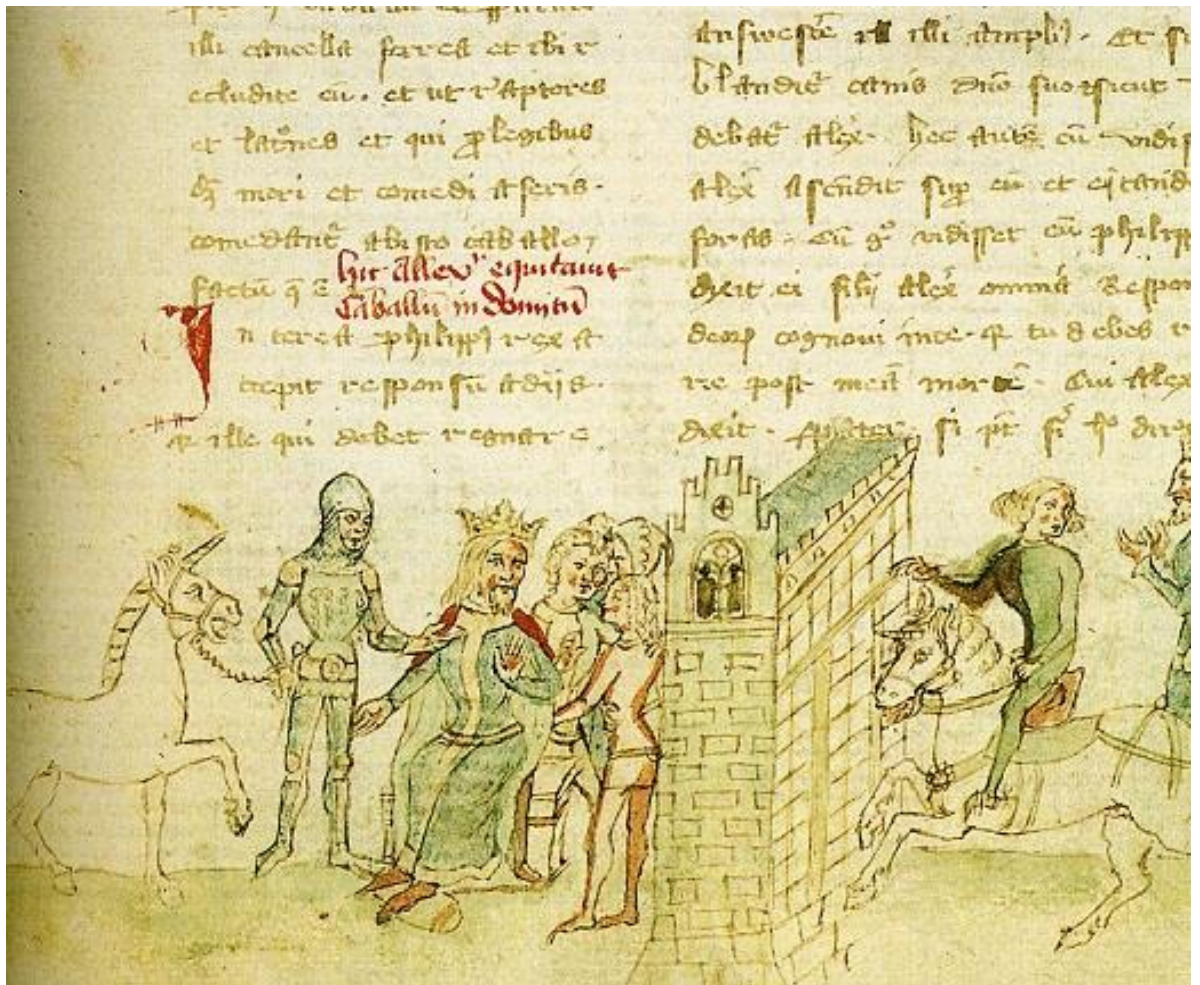 illi cancella ferrea et ibi r
ecludite eu. et ut raptores
et latrões et qui p legibus
mori et comedi a feris.
comedant ab isto caballo,
factu q e
hic allex equitavit
Caballu indomitu
In terea philipp rex a
ccepit responsu a diis.
q ille qui debet regnare
illi ampli. Et si
blandit canis dno suo sicut
debat alex. hec aute cu vidis
alex ascendit sup eu et
foras. Cu g vidisset eu philipp
dixit ei fili alex omnia Respon
deor cognovi in te. q tu debes r
re post mea morte. Cui alex
dixit. pater. si pt